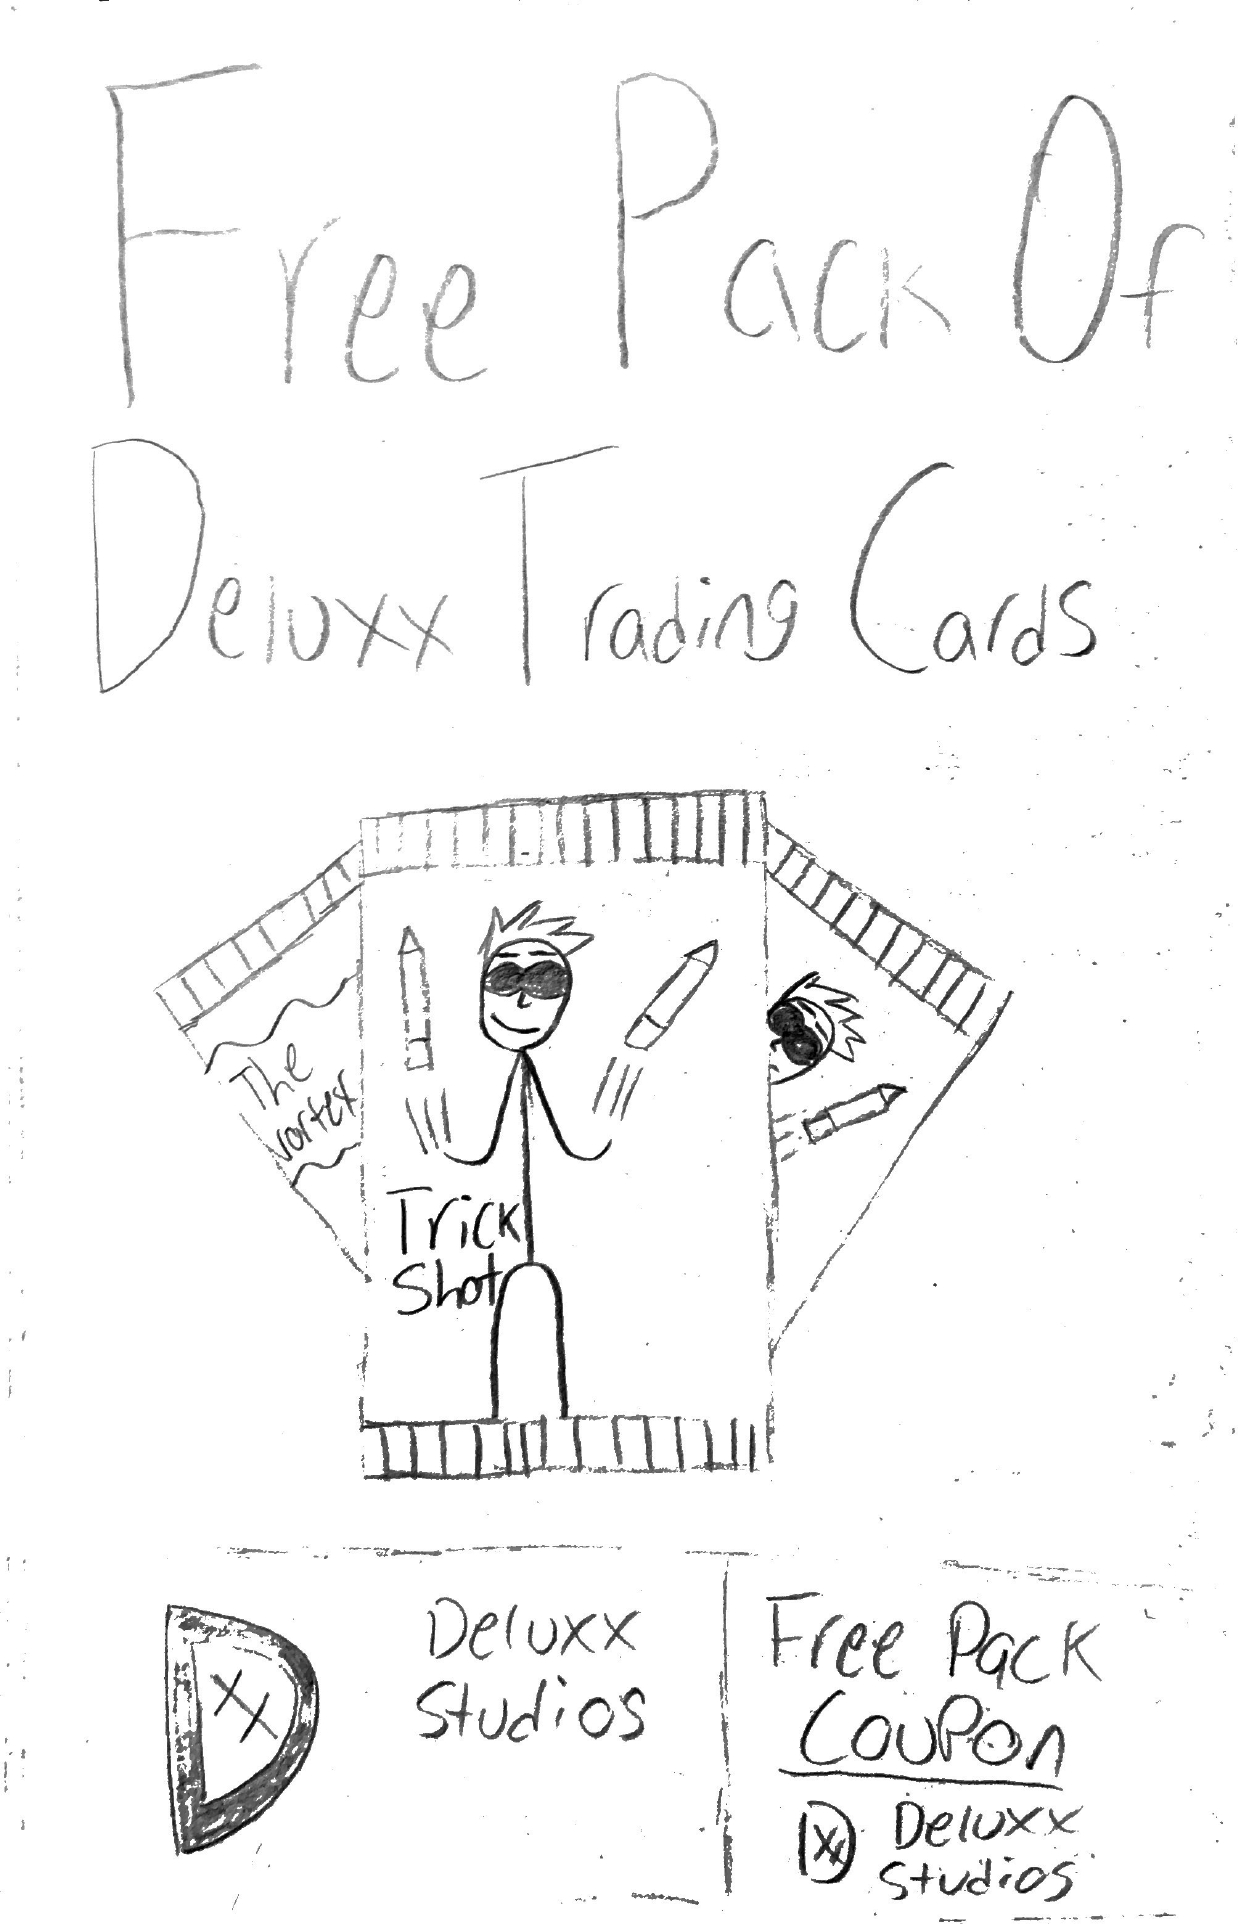 Free Pack Of
Deluxx Trading Cards
The
Vortex
Trick
Shot
XX
Deluxx
Studios
Free Pack
Coupon
XX Deluxx
Studios